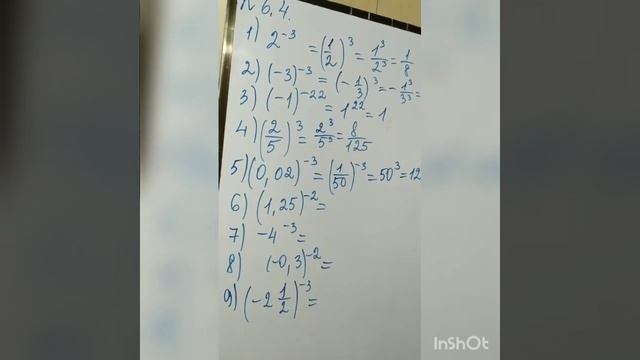 N 6, 4.
1) 2^-3 = (1/2)^3 = 1^3/2^3 = 1/8
2) (-3)^-3 = (-1/3)^3 = -1^3/3^3 =
3) (-1)^-22 = 1^22 = 1
4) (2/5)^3 = 2^3/5^3 = 8/125
5) (0,02)^-3 = (1/50)^-3 = 50^3 = 12
6) (1,25)^-2 =
7) -4^-3 =
8) (-0,3)^-2 =
9) (-2 1/2)^-3 =
InShOt